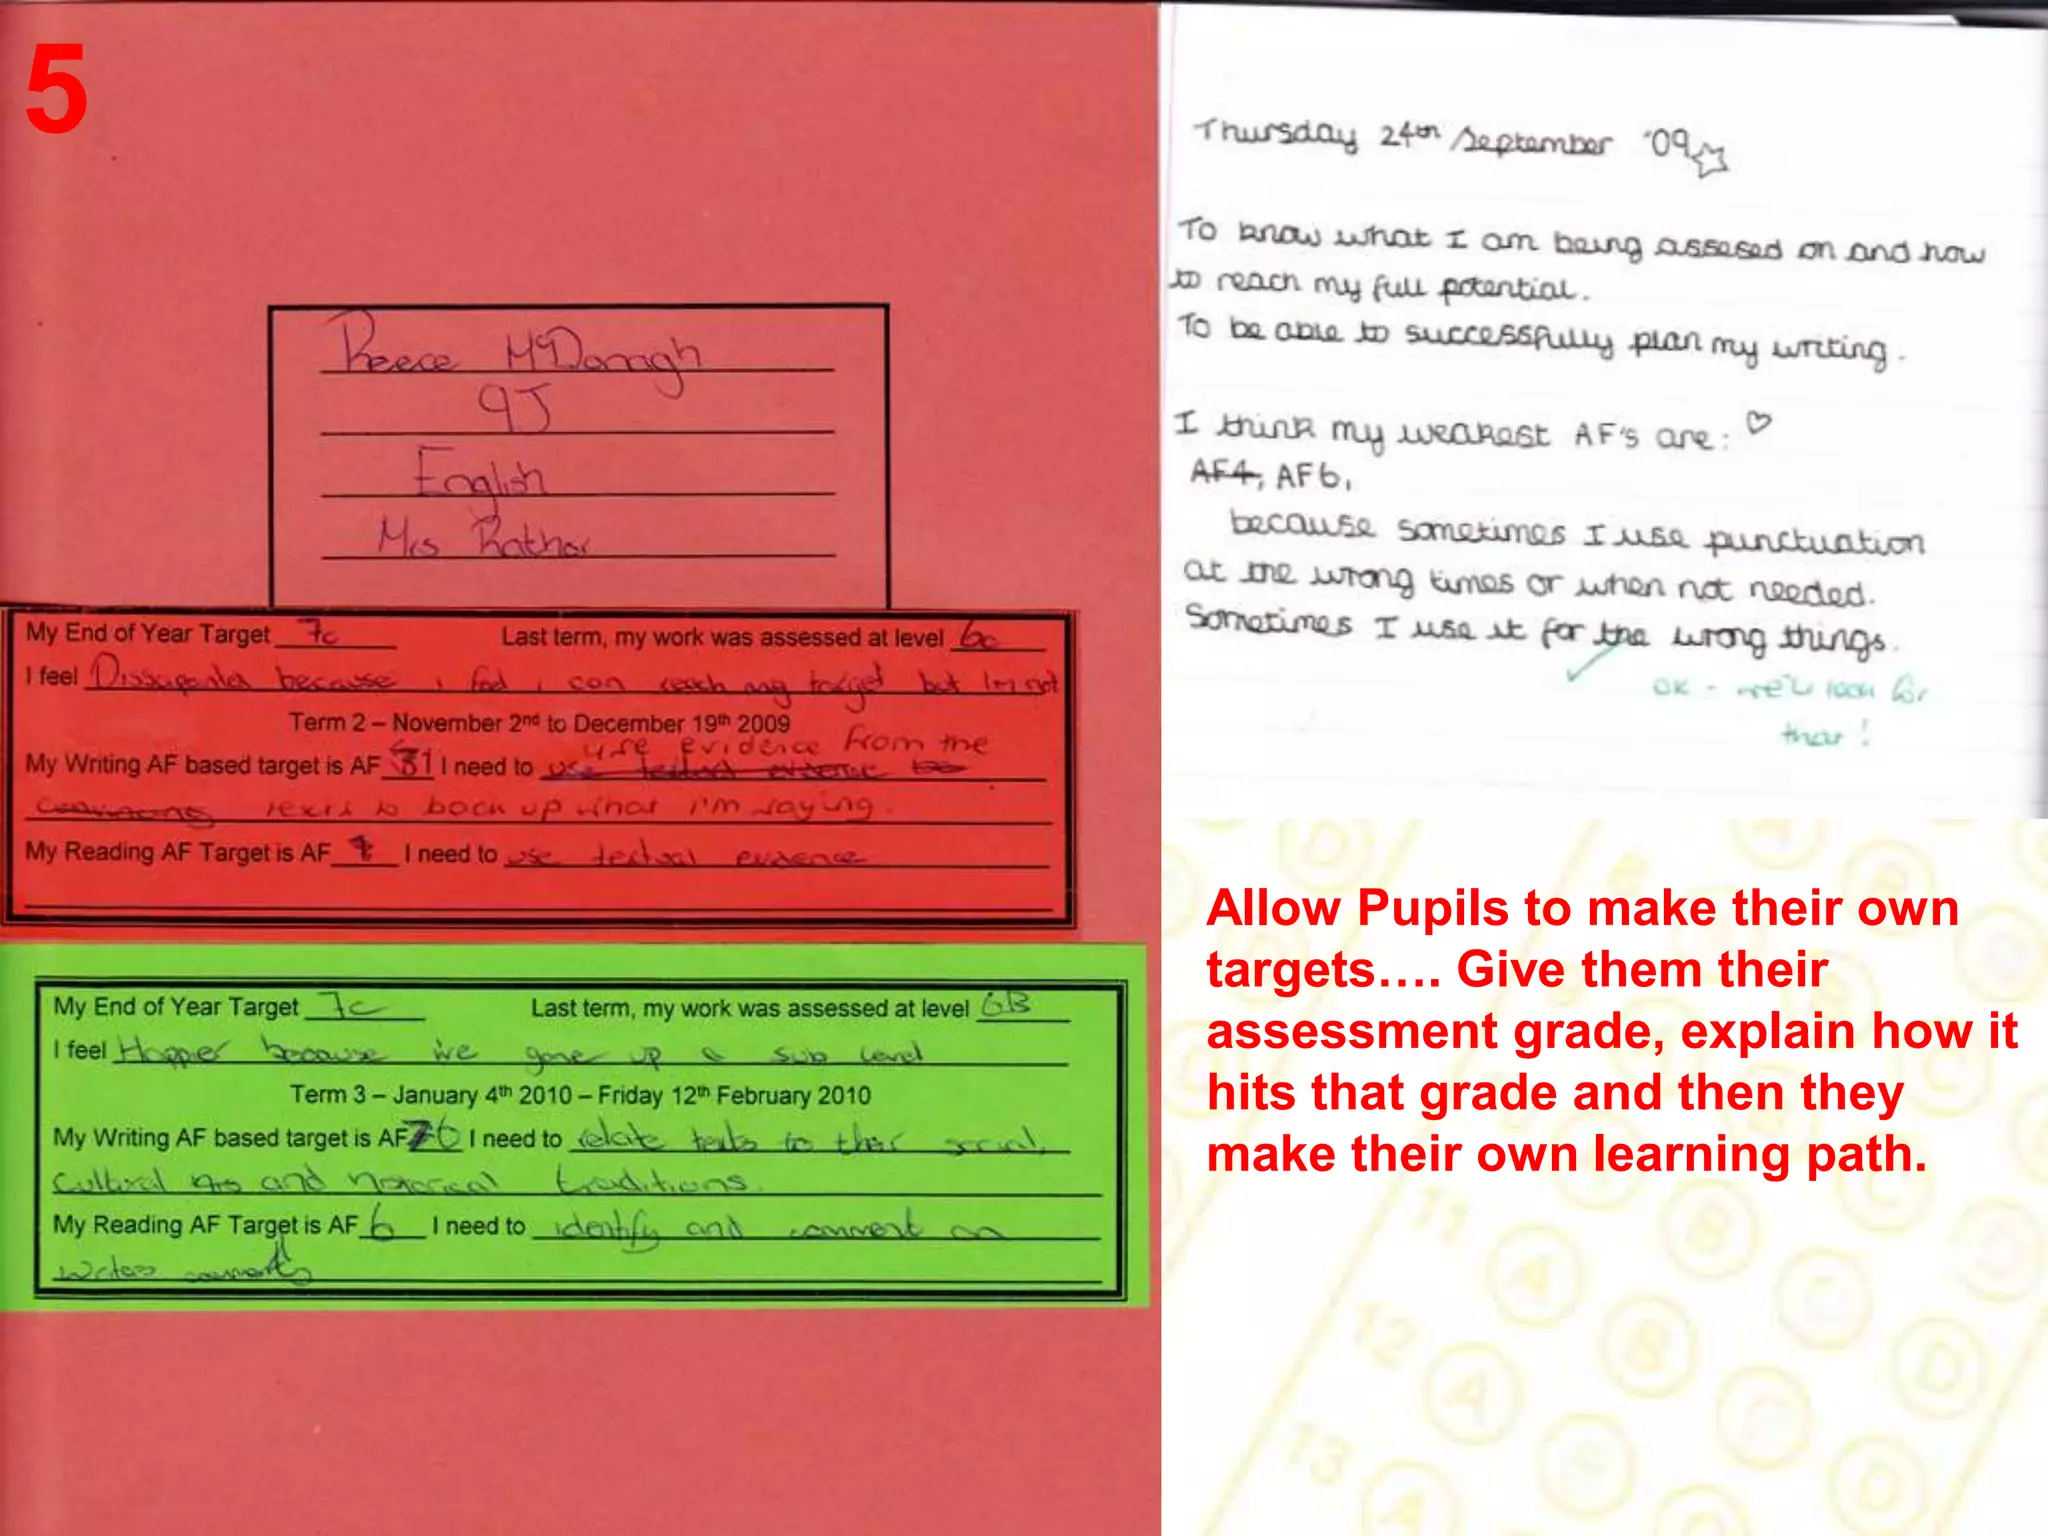 5
Reece McDonagh
9J
English
Mrs Rathor
My End of Year Target 7c Last term, my work was assessed at level 6c
I feel Dissapointed because i feel i can reach my target but Im not
Term 2 – November 2nd to December 19th 2009
My Writing AF based target is AF I need to use evidence from the
texts to back up what I'm saying.
My Reading AF Target is AF I need to use textual evidence
My End of Year Target 7c Last term, my work was assessed at level 6B
I feel Happier because ive gone up a sub level
Term 3 – January 4th 2010 – Friday 12th February 2010
My Writing AF based target is AF 6 I need to relate texts to their social,
Cultural and historical traditions.
My Reading AF Target is AF 6 I need to identify and comment on
Thursday 24th September '09
To know what I am being assesed on and how
to reach my full potential.
To be able to successfully plan my writing.
I think my weakest AF's are:
AF4, AF6,
because sometimes I use punctuation
at the wrong times or when not needed.
Sometimes I use it for the wrong things.
OK - we'll look for
that!
Allow Pupils to make their own
targets…. Give them their
assessment grade, explain how it
hits that grade and then they
make their own learning path.
11 A B C D
12 A B C D
13 A